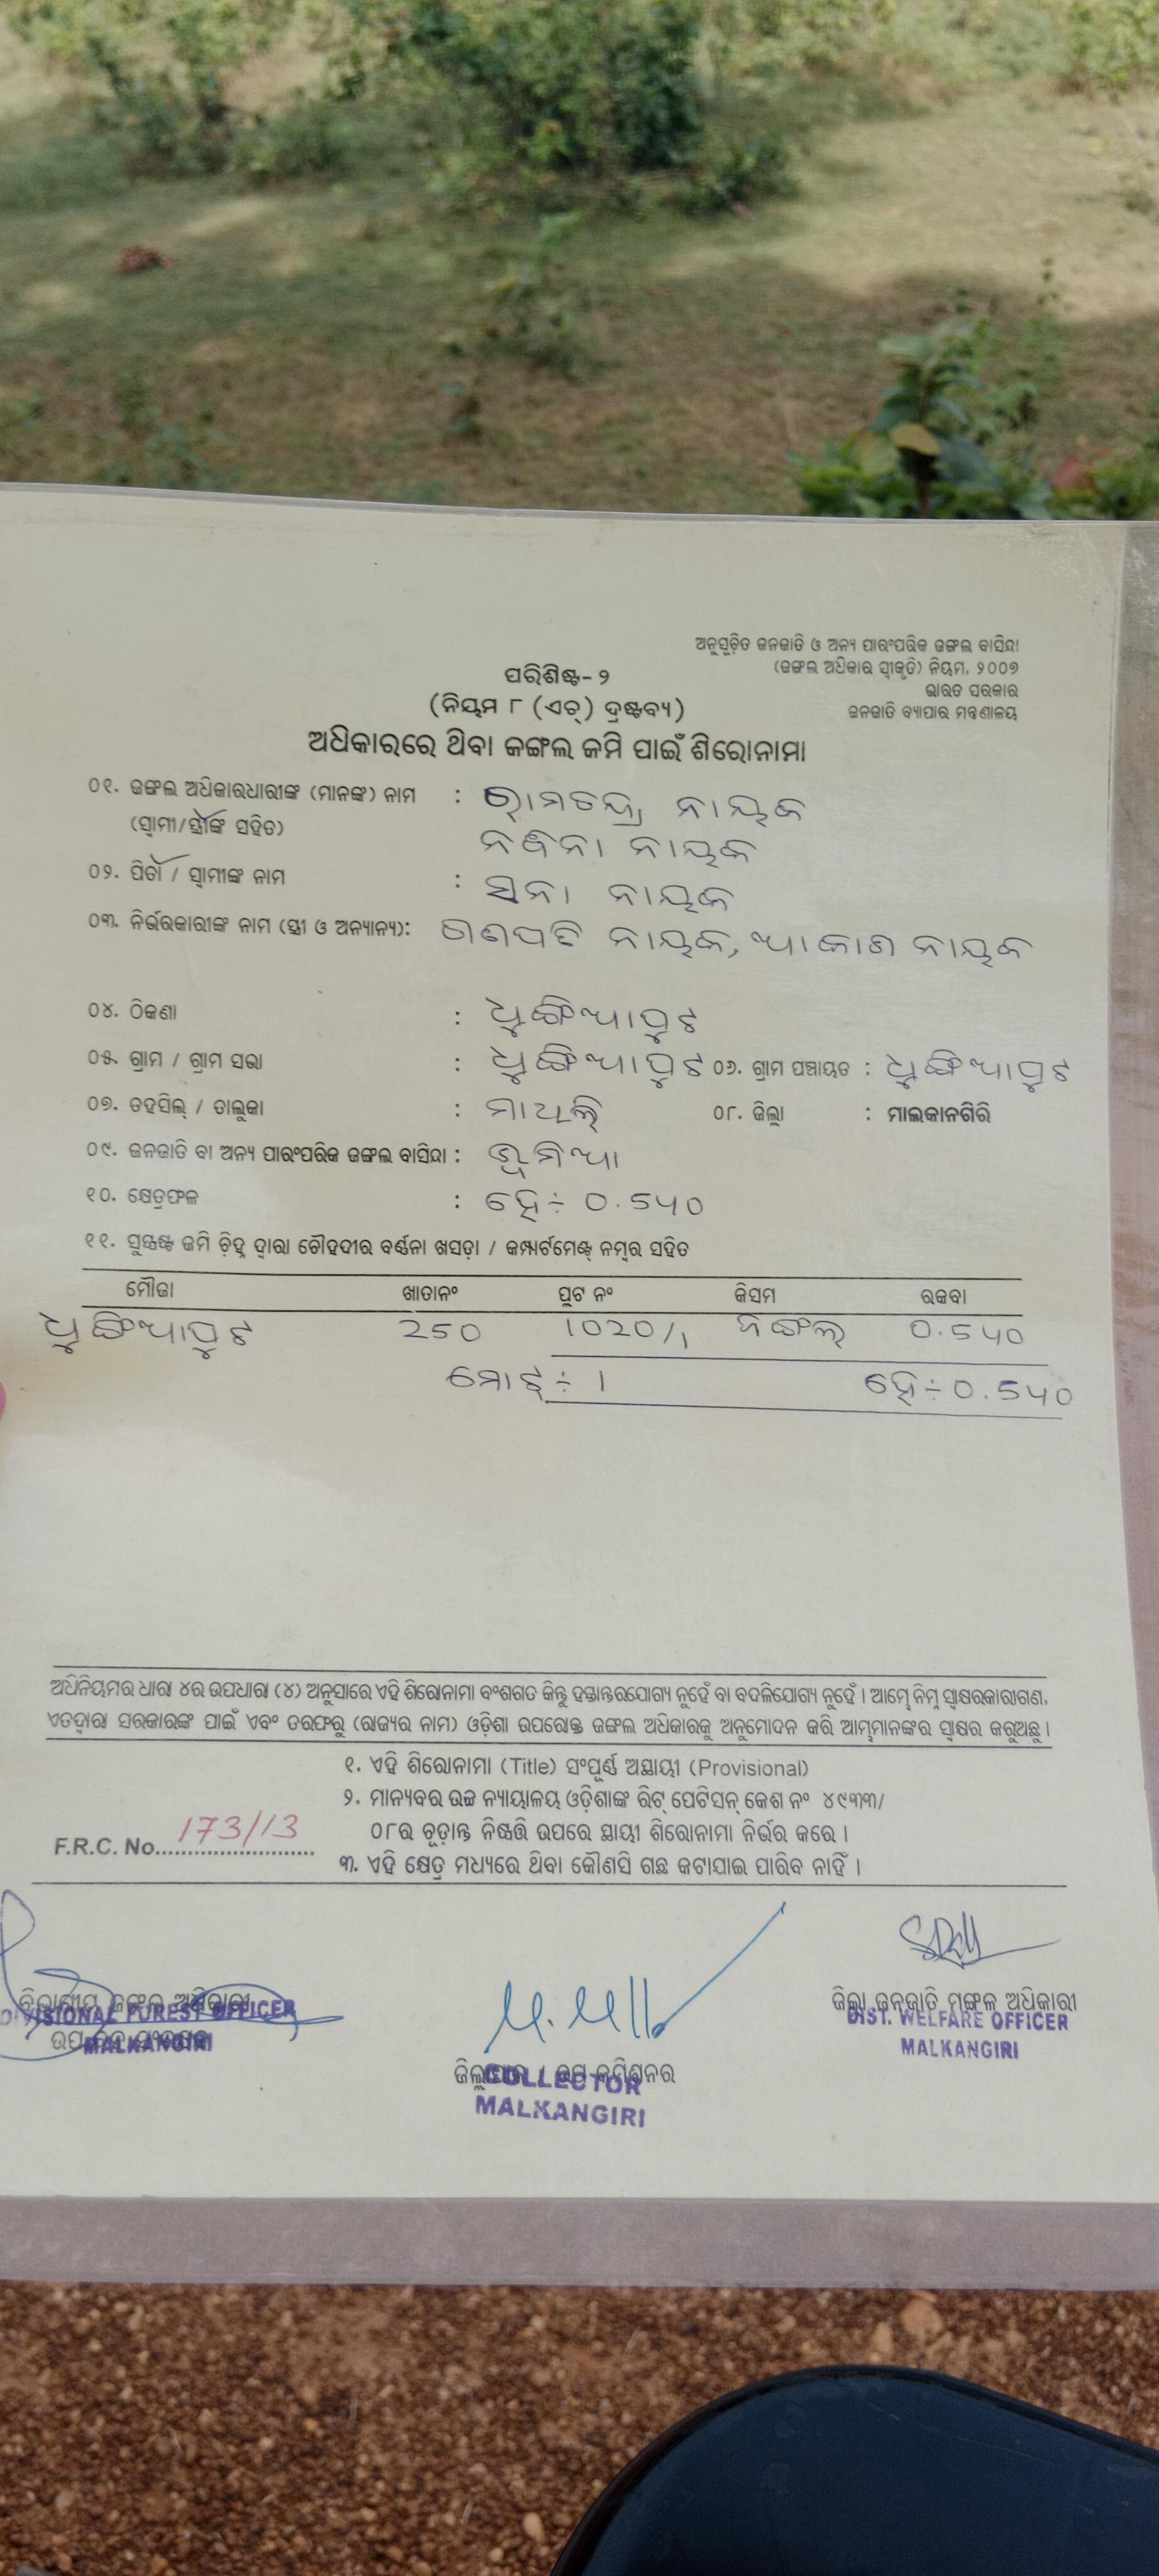 ଅନୁସୂଚିତ ଜନଜାତି ଓ ଅନ୍ୟ ପାରଂପରିକ ଜଙ୍ଗଲ ବାସିନ୍ଦା
(ଜଙ୍ଗଲ ଅଧିକାର ସ୍ୱୀକୃତି) ନିୟମ, ୨୦୦୭
ଭାରତ ସରକାର
ଜନଜାତି ବ୍ୟାପାର ମନ୍ତ୍ରଣାଳୟ
ପରିଶିଷ୍ଟ-୨
(ନିୟମ ୮ (ଏଚ୍) ଦ୍ରଷ୍ଟବ୍ୟ)
ଅଧିକାରରେ ଥିବା ଜଙ୍ଗଲ ଜମି ପାଇଁ ଶିରୋନାମା
୦୧. ଜଙ୍ଗଲ ଅଧିକାରଧାରୀଙ୍କ (ମାନଙ୍କ) ନାମ : ରାମଚନ୍ଦ୍ର ନାୟକ
(ସ୍ୱାମୀ/ସ୍ତ୍ରୀଙ୍କ ସହିତ) ନାୟକ
୦୨. ପିତା / ସ୍ୱାମୀଙ୍କ ନାମ : ସନା ନାୟକ
୦୩. ନିର୍ଭରକାରୀଙ୍କ ନାମ (ସ୍ତ୍ରୀ ଓ ଅନ୍ୟାନ୍ୟ): ଗଣପତି ନାୟକ, ଆକାଶ ନାୟକ
୦୪. ଠିକଣା : ଧୁଙ୍ଗିଆପୁଟ
୦୫. ଗ୍ରାମ / ଗ୍ରାମ ସଭା : ଧୁଙ୍ଗିଆପୁଟ ୦୬. ଗ୍ରାମ ପଞ୍ଚାୟତ : ଧୁଙ୍ଗିଆପୁଟ
୦୭. ତହସିଲ୍ / ତାଲୁକା : ମାଥିଲି ୦୮. ଜିଲ୍ଲା : ମାଲକାନଗିରି
୦୯. ଜନଜାତି ବା ଅନ୍ୟ ପାରଂପରିକ ଜଙ୍ଗଲ ବାସିନ୍ଦା : ଭୂମିଆ
୧୦. କ୍ଷେତ୍ରଫଳ : ହେ÷ 0.540
୧୧. ସୁସ୍ପଷ୍ଟ ଜମି ଚିହ୍ନ ଦ୍ୱାରା ଚୌହଦୀର ବର୍ଣ୍ଣନା ଖସଡ଼ା / କମ୍ପାର୍ଟମେଣ୍ଟ୍ ନମ୍ବର ସହିତ
ମୌଜା ଖାତାନଂ ପ୍ଲଟ ନଂ କିସମ ରକବା
ଧୁଙ୍ଗିଆପୁଟ 250 1020/1 ଜଙ୍ଗଲ 0.540
ମୋଟ÷ 1 ହେ÷0.540
ଅଧିନିୟମର ଧାରା ୪ର ଉପଧାରା (୪) ଅନୁସାରେ ଏହି ଶିରୋନାମା ବଂଶଗତ କିନ୍ତୁ ହସ୍ତାନ୍ତରଯୋଗ୍ୟ ନୁହେଁ ବା ବଦଳିଯୋଗ୍ୟ ନୁହେଁ । ଆମ୍ଭେ ନିମ୍ନ ସ୍ୱାକ୍ଷରକାରୀଗଣ,
ଏତଦ୍ଦ୍ୱାରା ସରକାରଙ୍କ ପାଇଁ ଏବଂ ତରଫରୁ (ରାଜ୍ୟର ନାମ) ଓଡ଼ିଶା ଉପରୋକ୍ତ ଜଙ୍ଗଲ ଅଧିକାରକୁ ଅନୁମୋଦନ କରି ଆମ୍ଭମାନଙ୍କର ସ୍ୱାକ୍ଷର କରୁଅଛୁ ।
୧. ଏହି ଶିରୋନାମା (Title) ସଂପୂର୍ଣ୍ଣ ଅସ୍ଥାୟୀ (Provisional)
୨. ମାନ୍ୟବର ଉଚ୍ଚ ନ୍ୟାୟାଳୟ ଓଡ଼ିଶାଙ୍କ ରିଟ୍ ପେଟିସନ୍ କେଶ ନଂ ୪୯୩୩/
୦୮ର ଚୂଡ଼ାନ୍ତ ନିଷ୍ପତ୍ତି ଉପରେ ସ୍ଥାୟୀ ଶିରୋନାମା ନିର୍ଭର କରେ ।
F.R.C. No. 173/13
୩. ଏହି କ୍ଷେତ୍ର ମଧ୍ୟରେ ଥିବା କୌଣସି ଗଛ କଟାଯାଇ ପାରିବ ନାହିଁ ।
ବିଭାଗୀୟ ଜଙ୍ଗଲ ଅଧିକାରୀ
DIVISIONAL FOREST OFFICER
MALKANGIRI
ଜିଲ୍ଲା ଜନଜାତି ମଙ୍ଗଳ ଅଧିକାରୀ
DIST. WELFARE OFFICER
MALKANGIRI
COLLECTOR
MALKANGIRI